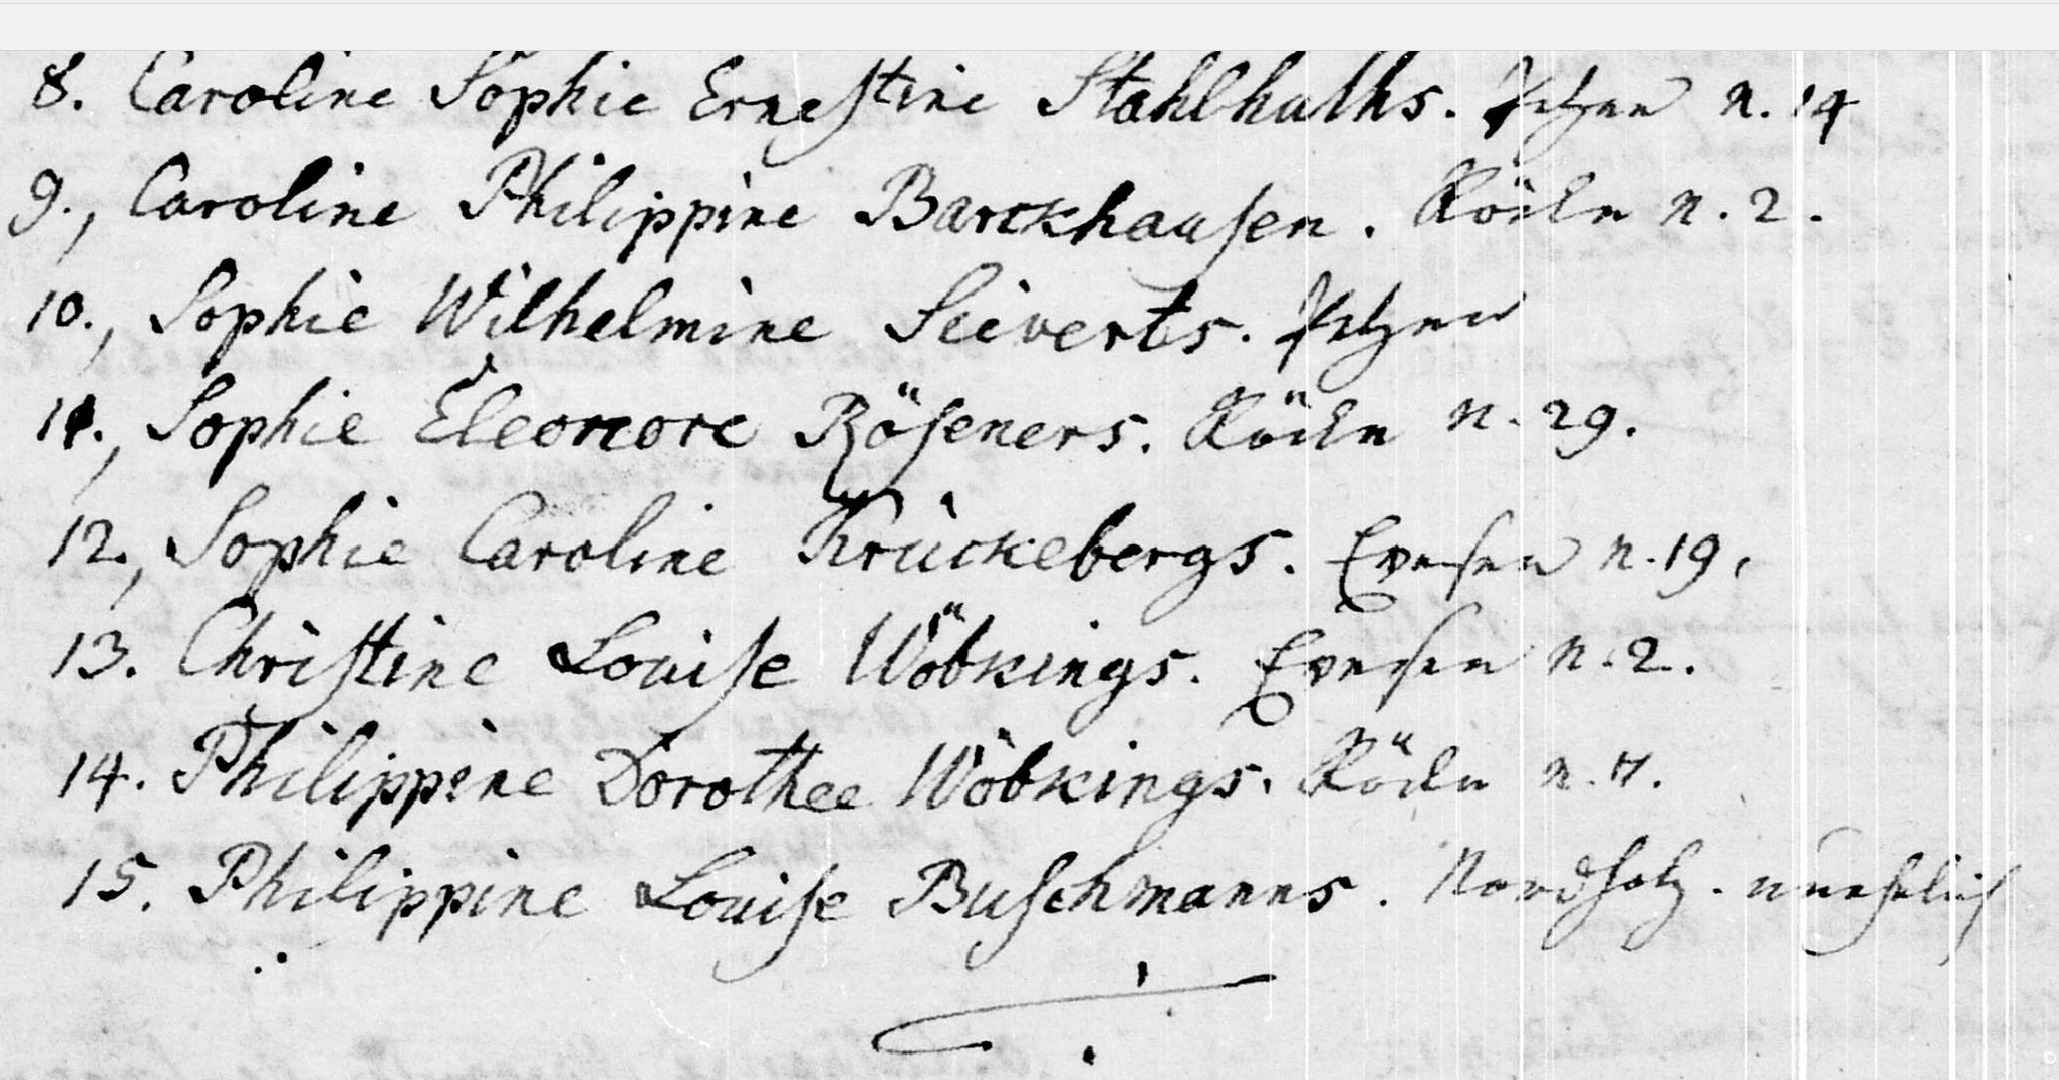 8. Caroline Sophie Erneſtine Stahlhuths. Petzen n. 14
9., Caroline Philippine Barckhauſen. Röcke n. 2.
10., Sophie Wilhelmine Seiverts. Petzen
11., Sophie Eleonore Röſeners. Röcke n. 29.
12., Sophie Caroline Krückebergs. Eveſen n. 19.
13. Chriſtine Louiſe Wöbkings. Eveſen n. 2.
14. Philippine Dorothee Wöbkings. Röcke n. 7.
15. Philippine Louiſe Buſchmanns. Nordholz. unehelich